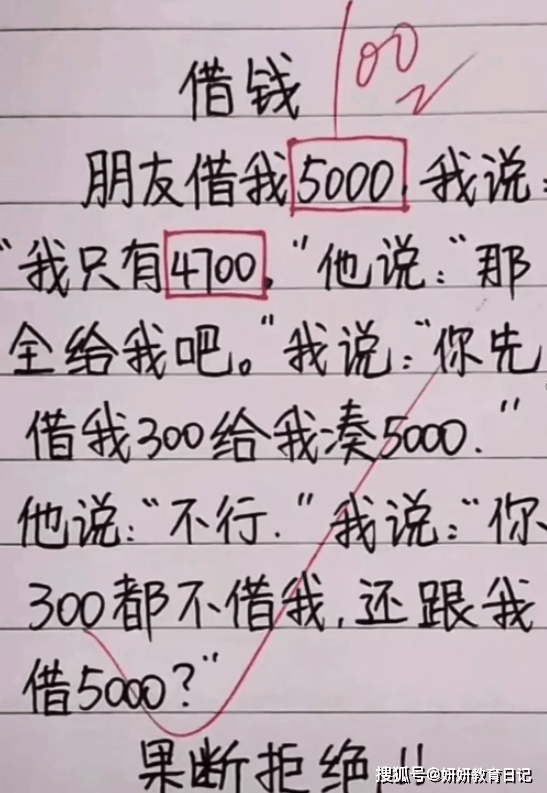 借钱
100
朋友借我5000,我说:
“我只有4700。“他说:“那
全给我吧。“我说:“你先
借我300给我凑5000.”
他说:“不行.“我说:“你
300都不借我,还跟我
借5000?“
果断拒绝!!
搜狐号@妍妍教育日记